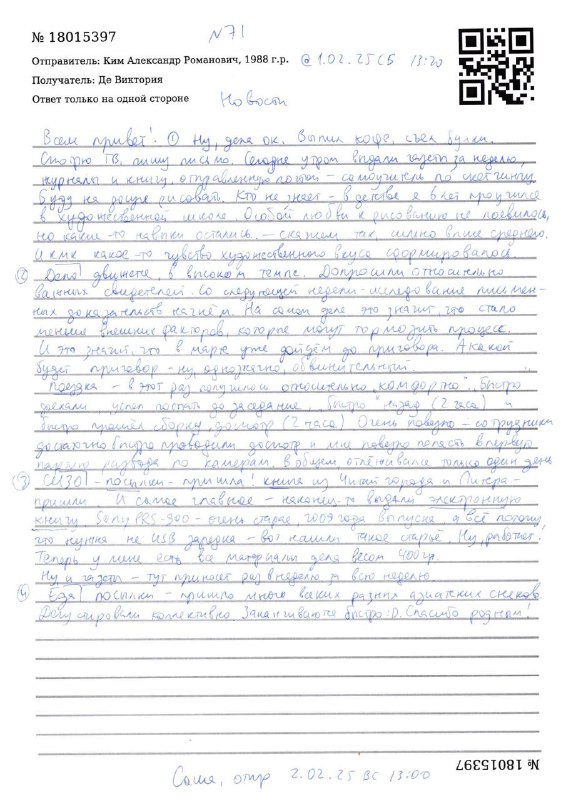 № 18015397
№71
Отправитель: Ким Александр Романович, 1988 г.р. @ 1.02.25 СБ 13:20
Получатель: Де Виктория
Ответ только на одной стороне
Новости
Всем привет! ① Ну, дела ок. Выпил кофе, съел булки.
Смотрю ТВ, пишу письмо. Сегодня утром выдали газеты за неделю,
журналы и книгу, отправленную почтой - самоучитель по скетчингу.
Буду на досуге рисовать. Кто не знает - в детстве я 6 лет проучился
в художественной школе. Особой любви к рисованию не появилось,
но какие-то навыки остались - скажем так, сильно выше среднего.
И как какое-то чувство художественного вкуса сформировалось.
② Дело движется в высоком темпе. Допросили относительно
важных свидетелей. Со следующей недели - исследование письмен-
ных доказательств начнём. На самом деле это значит, что стало
меньше внешних факторов, которые могут тормозить процесс.
И это значит, что в марте уже дойдём до приговора. А какой
будет приговор - ну, однозначно, обвинительный.
Поездка - в этот раз получилось относительно "комфортно". Быстро
доехали, успел поспать до заседание, быстро назад (2 часа) и
быстро прошёл сборку, досмотр (2 часа). Очень повезло - сотрудники
достаточно быстро проводили досмотр и мне повезло попасть в первую
развода по камерам. В общем, отлёживался только один день
③ СИЗО - посылки - пришла! книга из Читай города и Питера -
пришли. И самое главное - наконец-то выдали электронную
книгу. Sony PRS-900 - очень старая, 2009 года выпуска. А всё потому,
что нужна не USB зарядка - вот нашли такое старьё. Ну, работает.
Теперь у меня есть все материалы дела весом 400 гр.
Ну и газеты - тут приносят раз в неделю за всю неделю.
④ Еда посылки - пришло много всяких разных азиатских снеков.
Дегустировали коллективно. Заканчиваются быстро :D. Спасибо родным!
№ 18015397
Саша, отпр 2.02.25 ВС 13:00